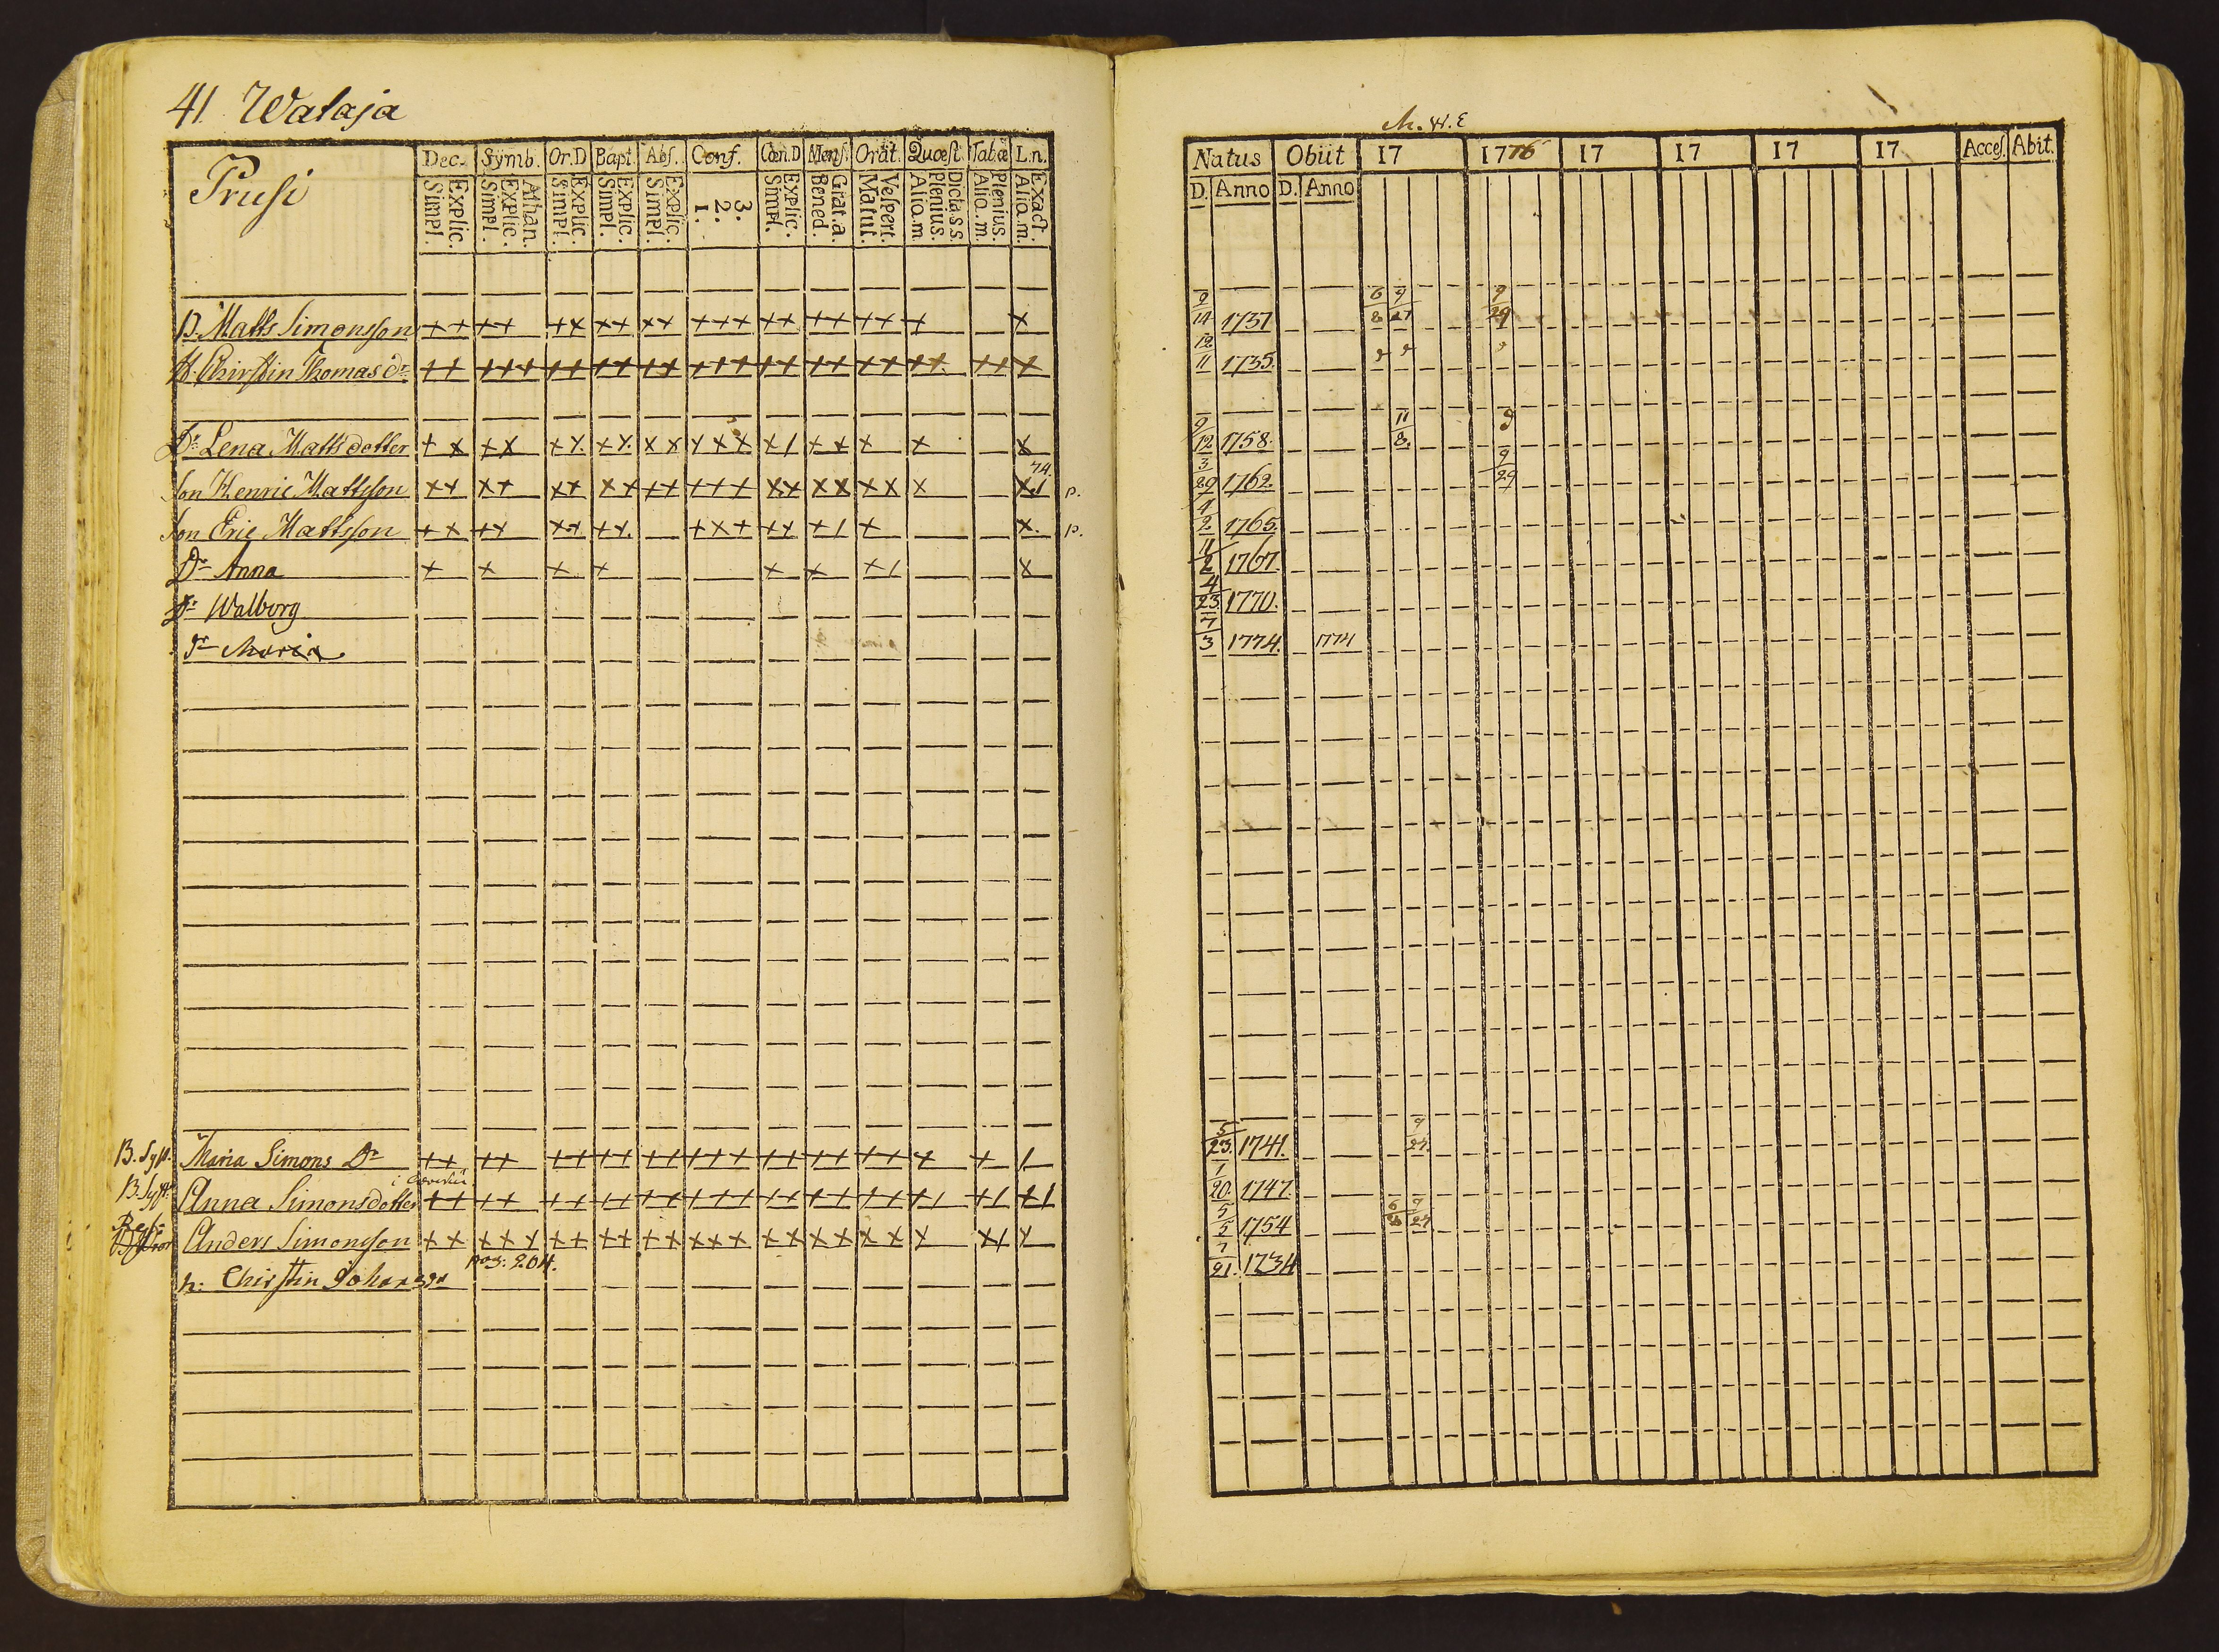 41 Walaja
Prusi
Dec. Symb. Or.D Bapt. Abs. Conf. Cœn.D Mens. Orat. Quæst. Tabæ L.n.
Explic. Simpl. Athan. Explic. Simpl. Explic. Simpl. Explic. Simpl. Explic. Simpl. 3. 2. 1. Explic. Simpl. Grat.a. Bened. Vespert. Matut. Dicta.s.s. Plenius. Aliq.m. Plenius. Aliq.m. Exact. Aliq.m.
B. Matts Simonsson ++ ++ ++ ++ ++ +++ ++ ++ ++ + x
H. Chirstin Thomas dr ++ +++ ++ ++ ++ +++ ++ ++ ++ ++ ++ x
Dr Lena Matts dotter + x + x + x + x x x x x x x / + + x x x
74.
Son Henric Mattsson ++ ++ ++ ++ ++ +++ xx xx xx x x/ p.
Son Eric Mattsson ++ ++ ++ ++ +++ ++ +/ + x p.
Dr Anna + x + + x + x/ x
Dr Walborg
dr Maria
B. Syst. Maria Simons Dr ++ ++ ++ ++ ++ +++ ++ ++ ++ + + /
B. Syst. Anna Simonsdotter ++ ++ ++ ++ ++ +++ ++ ++ ++ +/ +/ +/
Anders Simonsson ++ +++ ++ ++ ++ +++ ++ ++ ++ x x/ x
pag: 204.
h: Chirstin Johansdr
M. W. E
Natus Obiit 17 1776 17 17 17 17 Acces. Abit.
D. Anno D. Anno
9/14 1737 6/8 9/27 9/29
12/11 1735.
9/12 1758. 11/8. 9
3/29 1762. 9/29
1/2 1765.
11/2 1767.
4/23 1770.
7/3 1774. 1774
5/23. 1741. 9/27.
1/20. 1747.
5/5 1754 6/8 9/27
7/21. 1734